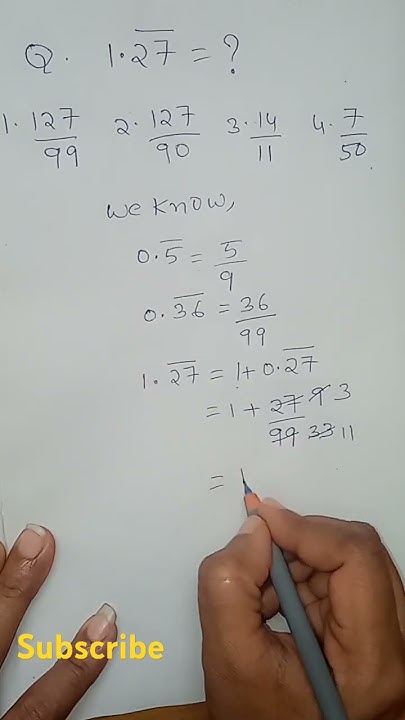 Q. 1.2̅7̅ = ?
1. 127/99 2. 127/90 3. 14/11 4. 7/50
we know,
0.5̅ = 5/9
0.3̅6̅ = 36/99
1.2̅7̅ = 1+0.2̅7̅
= 1 + 27/99 9 3 33 11
=
Subscribe